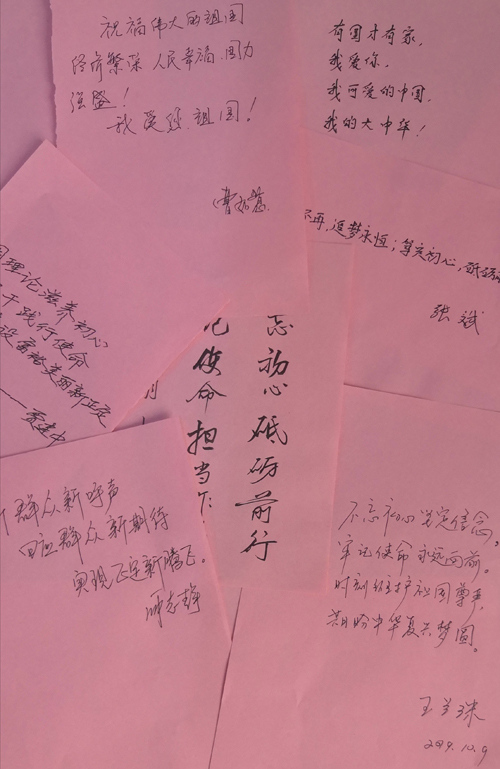 祝福伟大的祖国
经济繁荣 人民幸福 国力
强盛！
我爱您 祖国！
有国才有家，
我爱你，
我可爱的中国，
我的大中华！
不再，追梦永恒；笃定初心，砥砺
张斌
理论滋养初心
践行使命
设富裕美丽新
忘初心砥砺前行
记使命担当作
群众新呼声
回应群众新期待
实现飞跃新腾飞。
不忘初心坚定信念，
牢记使命永远向前。
时刻维护祖国尊严，
共盼中华复兴梦圆。
王兰珠
2019.10.9